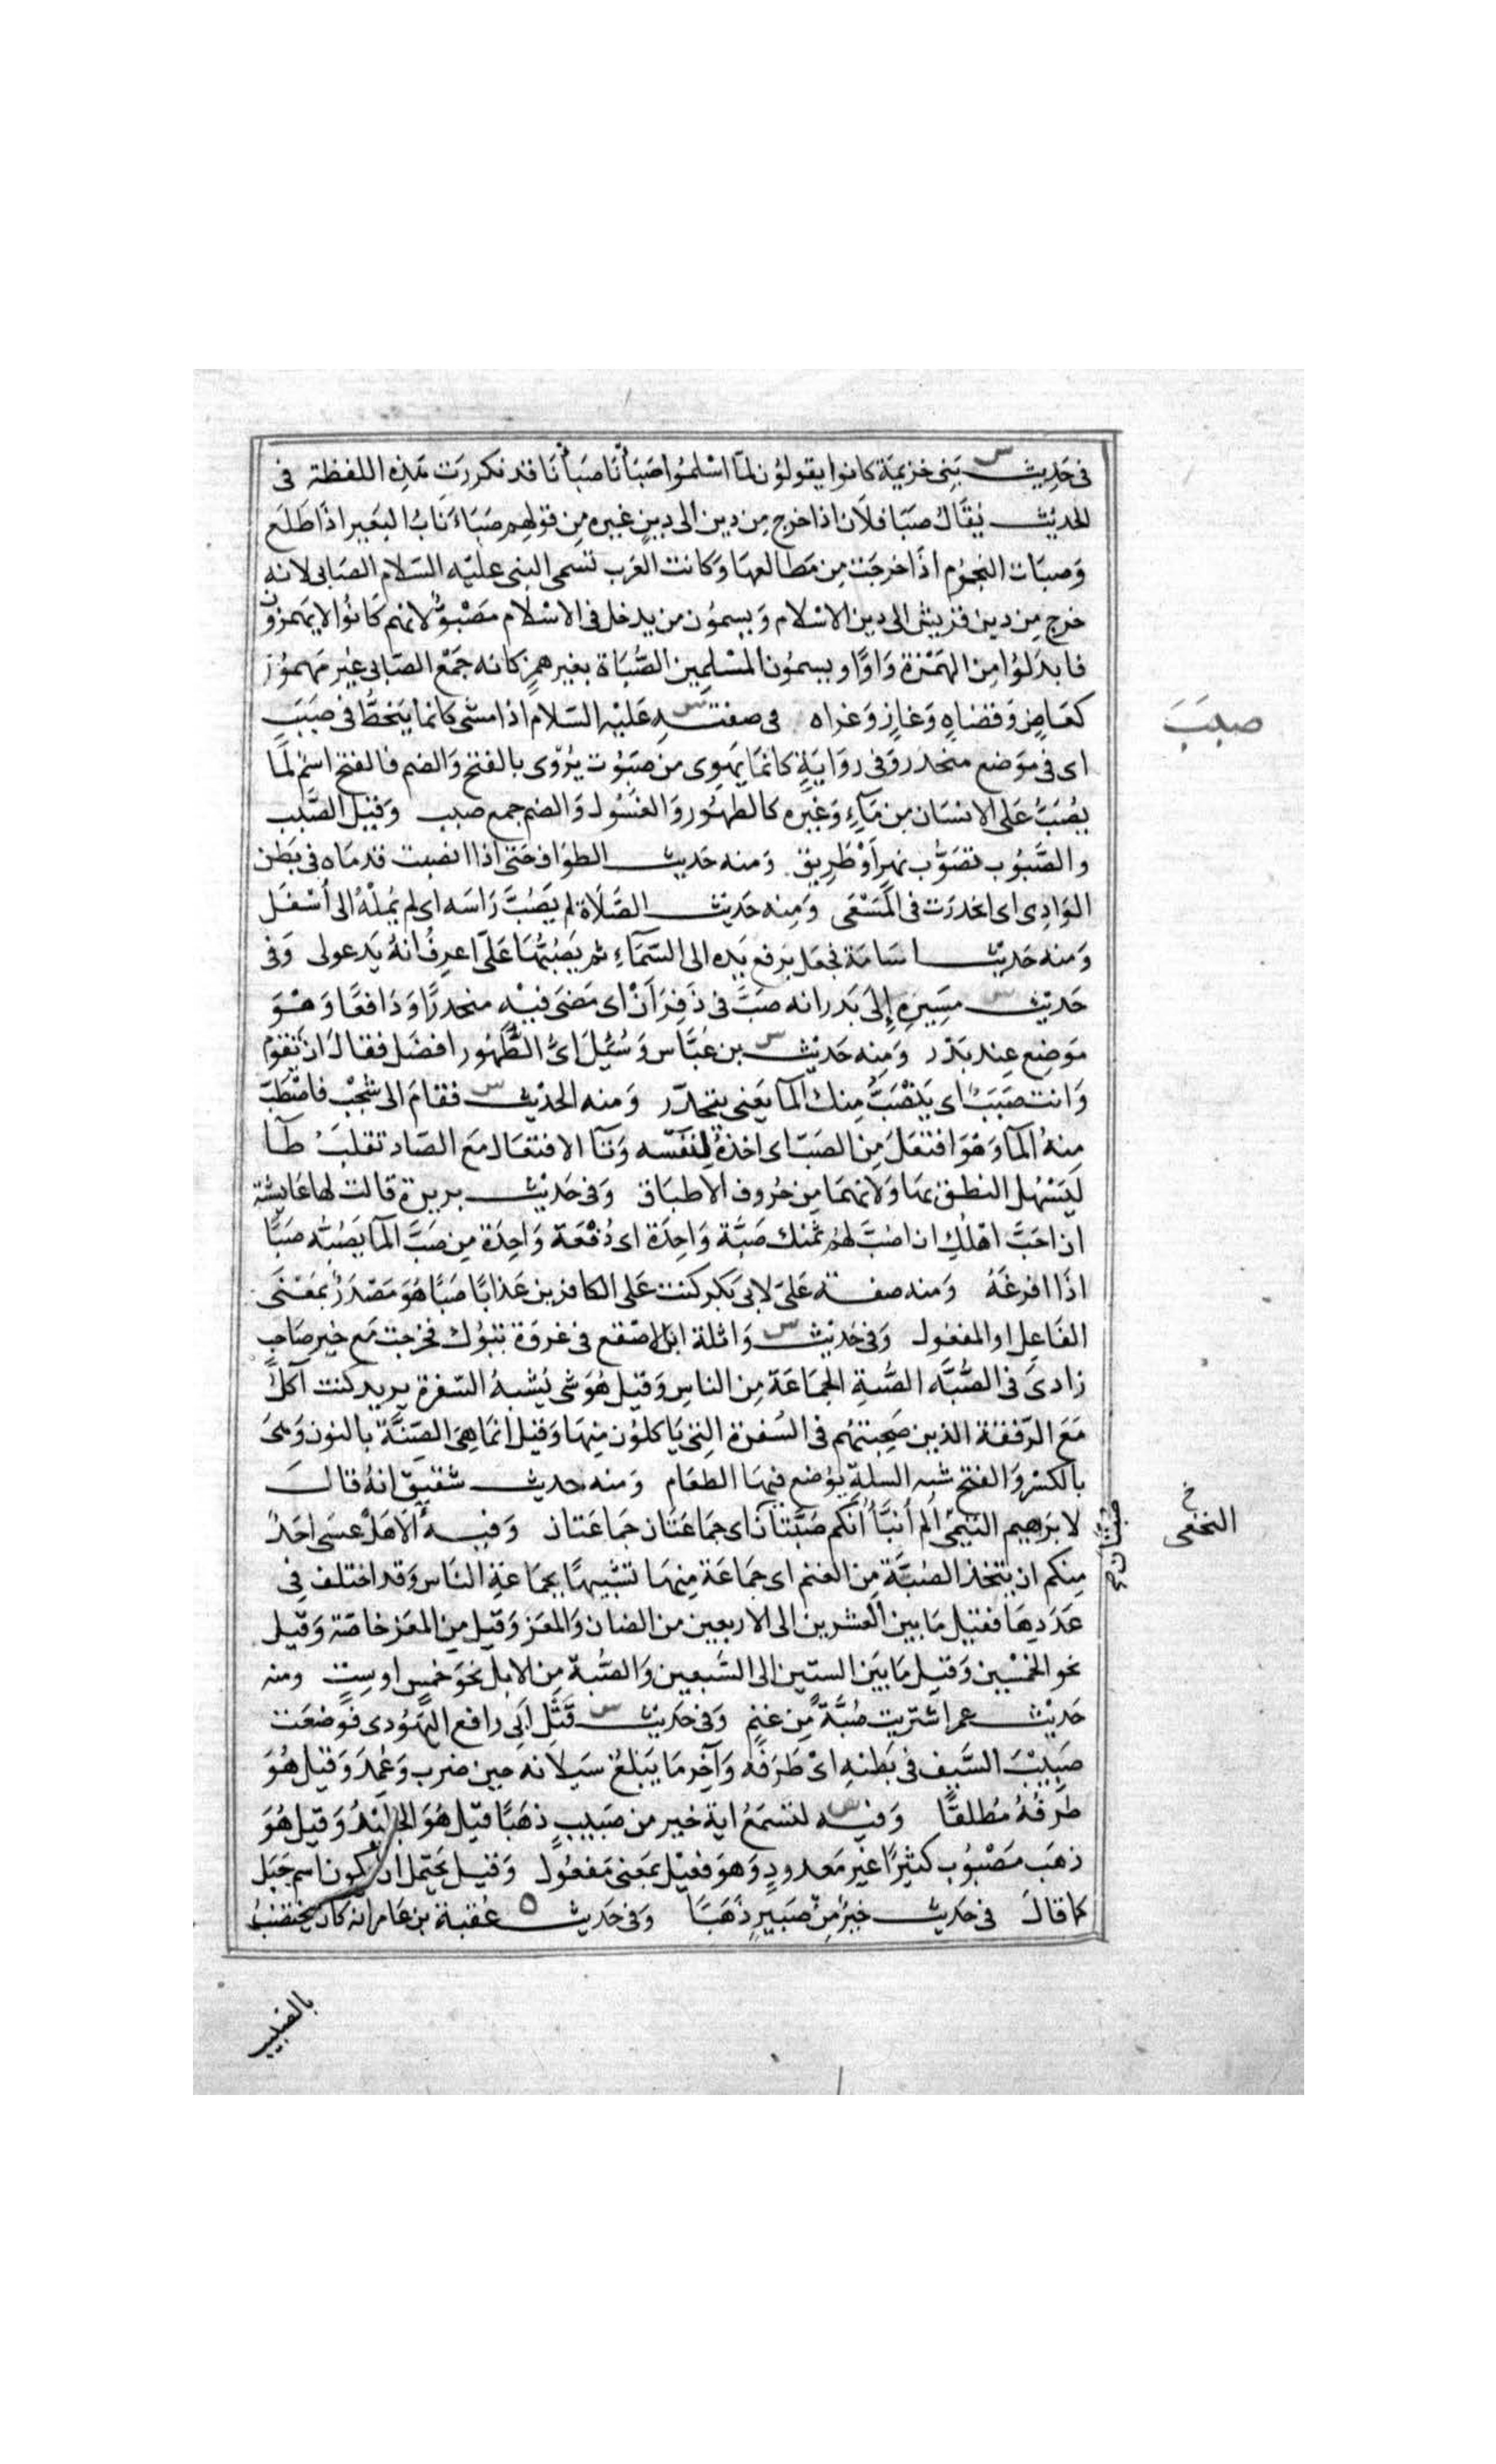 في حَدِيث بَنِي خزيمَة كانوا يقولُون لمّا اسْلمُوا صَبَأنَا صبَأنَا قد تكررَت هَذِه اللفظة في
الحديْث يُقَالُ صبَا فلَان اذا خرج مِن دين الى دِينٍ غيره مِن قولهِم صَبَاءَ نَابُ البَعِير اذَا طَلَع
وَصبَات النجُوم اذَا خرجَت مِن مَطالعهَا وَكانت العَرب تسَمى النبى عليْه السَّلام الصَابى لانه
خرج مِن دين قريْش الى دين الاسْلام وَيسمُون من يدخل فى الاسْلام مَصْبُوّ لانهم كَانُوا لا يَهمزون
فابدَلُوا مِن الهَمْزة وَاوًا ويسمُون المسْلمِين الصُّبَاة بغير همزٍ كانه جمَعْ الصَابى غيْر مَهمُوز
كعَاضٍ وَقضاهٍ وَغازٍ وَغزاه في صفتـه عَليْه السَلام اذا مشى كانما يَنحَطُّ فى صَبَبٍ
اى فى مَوَضع منحدر وَفى روَايَةٍ كانمَا يَهوِى من صَبُوت يُرْوى بالفتح وَالضم فالفتح اسْم لَمَا
يُصَبَّ عَلى الانسَان مِن مَآءٍ وَغيْره كالطهُور وَالغسُول وَالضم جمع صبب وَقيْل الصَّبب
والصَّبُوب تصَوّب نهرٍ اَوْ طَرِيق وَمنه حَديث الطوَاف حَتى اذا انصبت قدمَاه فى بَطن
الوَادِى اى انحَدرَت فى المَسْعَى وَمِنه حَديْث الصَّلَاة لم يَصُبَّ رَاسَه اى لم يُملْهُ الى أَسْفَل
وَمنه حَديْث اسَامَة فجعَل يَرفع يَده الى السَّمَآءِ ثم يَصُبّهَا عَلَىّ اعرِفُ انهُ يَدعولى وَفى
حَديْث مسِيرِه إِلى بَدر انه صبَّ فى ذَفِرَانْ اى مَضَى فيْه منحدرًا وَدَافعًا وَهْوَ
مَوضع عِند بَدْر وَمِنه حَديْث بن عَبَّاس وَسُئِلَ اىُّ الطَّهُور افضَل فقالَ ان تقوم
وَانت صَبَبٌ اى يَنْصَبُّ مِنك المآ يَعنى يتحَدّر وَمنه الحديْث فقامَ الى شَجْبٍ فاصْطَبّ
مِنهُ المآ وَهوَ افتعَلَ مِن الصَبّ اى اخذهُ لنفْسه وَتآ الافتعَال مَع الصَاد تقلبُ طآ
ليَسْهُل النطق بهَا وَلانهمَا مِن حُروف الاطبَاق وَفى حَديْث بريرة قالت لهَا عَايشَة
ان احَبَّ اهْلُكِ ان اصُبَّ لهُم ثمَنك صَبَّة وَاحِدَة اى دُفْعَة وَاحِدَة مِن صَبَّ المآ يَصُبُّه صَبًّا
اذَا افرغَهُ وَمنه صفـة عَلىّ لابى بَكر كنت عَلى الكافرين عَذابًا صَبًّا هُوَ مَصْدَرٌ بمَعْنَى
الفَاعِل او المفعُول وَفى حَديْث وَاثلة ابن الاصْقع فى غزوَة تبُوك فخرَجت مَع خير صَاحِبٍ
زادى فى الصُّبَّه الصُّبةِ الجَمَاعَة مِن الناسِ وَقيل هُوَ شى يُشبهُ السّفرة يريد كنت آكُل
مَعَ الرّفقَة الذين صَحِبتهُم فى السُفرة التِى يَاكلُون مِنهَا وَقيل انمَا هِىَ الصَنَّة بالنون وَهىَ
بالكسْر وَالفتح شبْه السلةِ يوُضع فيهَا الطعَام وَمنه حديث شقيق انهُ قالَ
لابْرَاهيم التيْمىّ ألم أُنبَّأُ أنكُم صُبَّتان اى جَمَاعتَان جَمَاعَتان وَفيـه ألَا هَلْ عسَى احَدٌ
مِنكم ان يتخذ الصُبَّة مِن الغنم اى جَمَاعَة مِنهَا تشْبيهًا بجمَاعةِ النَاس وَقد اختلف فِى
عَدَدِهَا فقيل مَا بين العشرين الى الاربعين من الضان وَالمعَز وَقيْل مِن المعَز خاصَة وَقيْل
نحو الخمْسِين وَقيل مَا بَيَن الستين الى السَّبعين وَالصُّبة مِن الابل نحوَ خمسٍ او ستٍ ومنه
حَديْث عمر اشتريت صُبَّةً مِّن غنمٍ وَفى حَديْث قَتْل أبى رافع اليَهُودى فوَضعَت
صَبِيْبَ السَّيف فى بَطنهِ اىْ طَرَفه وَآخِر مَا يَبلغُ سَيلانه حين ضرب وَعمدَ وَقيل هُوَ
طَرَفُهُ مُطلقًا وَفيـه لتسمَعُ اية خير من صَبيبٍ ذهَبًا قيل هُوَ الجَلِيْدُ وَقيل هُوَ
ذهَب مَصْبُوب كثيْرًا غَيْر مَعدودٍ وَهوَ فعيْل بمَعنى مَفعُول وَقيل يحتمل ان يكون اسم جَبَل
كما قالَ فى حَديث خيرٌ مِنْ صَبيرٍ ذَهَبًا وَفى حَديث عُقبة بن عَامر انه كان يختضبُ
صبب
النخعى خ
بالصبيب